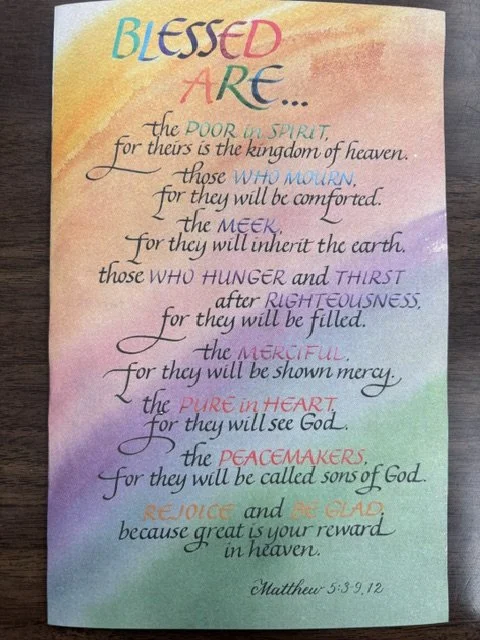 BLESSED
ARE...
the POOR in SPIRIT,
for theirs is the kingdom of heaven.
those WHO MOURN,
for they will be comforted.
the MEEK,
for they will inherit the earth.
those WHO HUNGER and THIRST
after RIGHTEOUSNESS,
for they will be filled.
the MERCIFUL,
for they will be shown mercy.
the PURE in HEART,
for they will see God.
the PEACEMAKERS,
for they will be called sons of God.
REJOICE and BE GLAD,
because great is your reward
in heaven.
Matthew 5:3-9,12